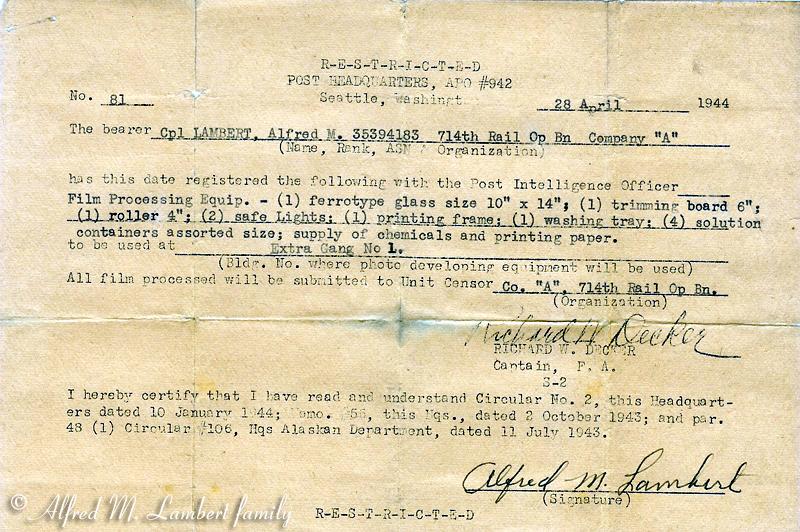 R-E-S-T-R-I-C-T-E-D
POST HEADQUARTERS, APO #942
No. 81 Seattle, Washingt 28 April 1944
The bearer Cpl LAMBERT, Alfred M. 35394183 714th Rail Op Bn Company "A"
(Name, Rank, ASN / Organization)
has this date registered the following with the Post Intelligence Officer
Film Processing Equip. - (1) ferrotype glass size 10" x 14"; (1) trimming board 6";
(1) roller 4"; (2) safe Lights; (1) printing frame; (1) washing tray; (4) solution
containers assorted size; supply of chemicals and printing paper.
to be used at Extra Gang No 1.
(Bldg. No. where photo developing equipment will be used)
All film processed will be submitted to Unit Censor Co. "A", 714th Rail Op Bn.
(Organization)
Richard W Decker
RICHARD W. DECKER
Captain, F. A.
S-2
I hereby certify that I have read and understand Circular No. 2, this Headquart-
ers dated 10 January 1944; Memo. #56, this Hqs., dated 2 October 1943; and par.
48 (1) Circular #106, Hqs Alaskan Department, dated 11 July 1943.
Alfred M. Lambert
(Signature)
R-E-S-T-R-I-C-T-E-D
© Alfred M. Lambert family